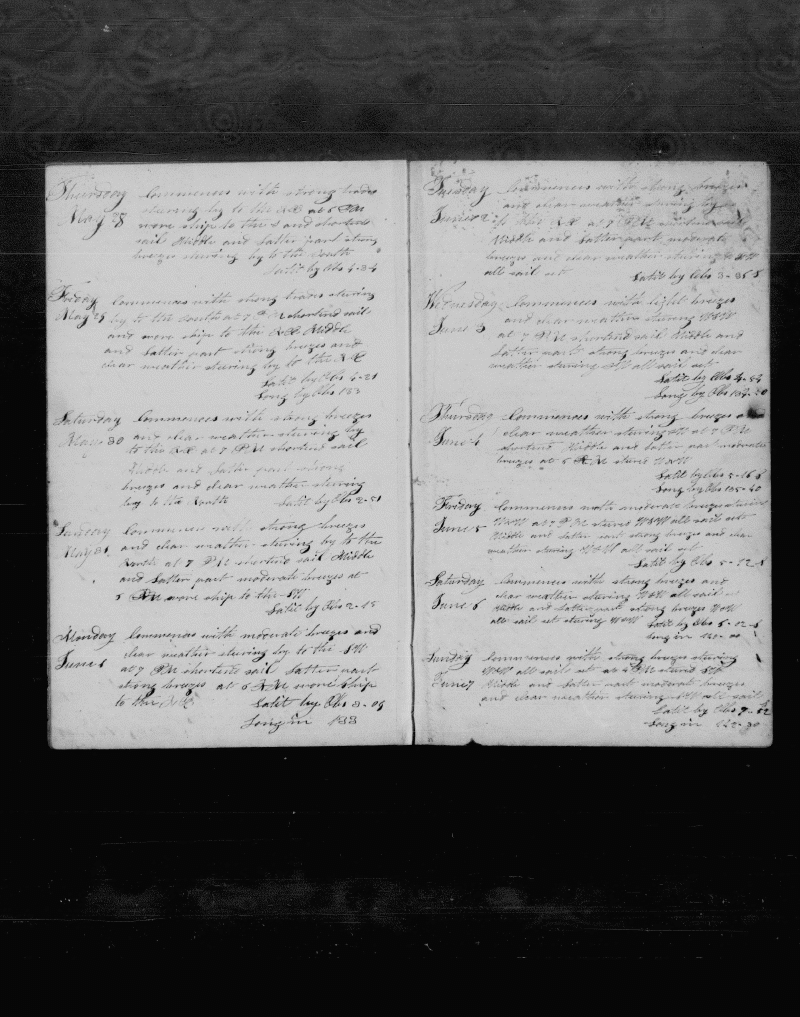 Thursday Commences with strong trades
May 28 stearing by to the N E at 5 PM
wore ship to the S and shortend
sail Middle and Latter part strong
breezes stearing by to the South
Latit by Obs 4-34
Friday Commences with strong trades stearing
May 29 by to the South at 7 P M shortind sail
and wore ship to the N E Middle
and Latter part strong breezes and
clear weather stearing by to the N E
Latit by Obs 4-21
Long by Obs 133
Saturday Commences with strong breezes
May 30 and clear weather stearing by
to the N E at 7 P M shortind sail
Middle and Latter part strong
breezes and clear weather stearing
by to the South Latit by Obs 2-51
Sunday Commences with strong breezes
May 31 and clear weather stearing by to the
North at 7 P M shortind sail Middle
and Latter part moderate breezes at
5 A M wore ship to the S W
Latit by Obs 2-15
Monday Commences with moderate breezes and
June 1 clear weather stearing by to the S W
at 7 P M shortind sail Latter part
strong breezes at 5 A M wore ship
to the N E Latit by Obs 3-09
Long in 133
Tuesday Commences with strong breezes
June 2 and clear weather stearing by
to the N E at 7 P M shortind sail
Middle and Latter part moderate
breezes and clear weather stearing
all sail set Latit by Obs 3-35 S
Wednesday Commences with light breezes
June 3 and clear weather stearing WSW
at 7 P M shortind sail Middle and
Latter part strong breezes and clear
weather stearing all sail set
Latit by Obs 4-54
Long by Obs 134-30
Thursday Commences with strong breezes and
June 4 clear weather stearing W at 7 P M
shortind Middle and Latter part moderate
breezes at 5 A M steard WSW
Latit by Obs 5-16 S
Long by Obs 135-40
Friday Commences with moderate breezes stearing
June 5 WSW at 7 P M steard WSW all sail set
Middle and Latter part strong breezes and clear
weather stearing all sail set
Latit by Obs 5-12 S
Saturday Commences with strong breezes and
June 6 clear weather stearing all sail set
Middle and Latter part strong breezes
all sail set stearing Latit by Obs 5-02 S
Long in 140-00
Sunday Commences with strong breezes stearing
June 7 all sail set at 4 P M steard SW
Middle and Latter part moderate breezes
and clear weather stearing SW all sail
Latit by Obs 7-12
Long in 142-30